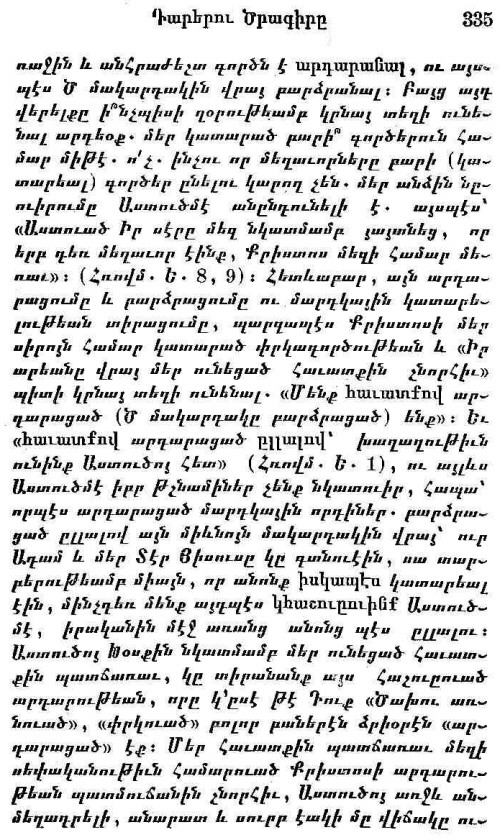 Դարերու Ծրագիրը 335
ռաջին և անհրաժեշտ գործն է արդարանալ, ու այս-
պէս Ծ մակարդակին վրայ բարձրանալ։ Բայց այդ
վերելքը ի՞նչպիսի զօրութեամբ կրնայ տեղի ունե-
նալ արդեօք. մեր կատարած բարի՞ գործերուն հա-
մար միթէ. ո՛չ. ինչու որ մեղաւորները բարի (կա-
տարեալ) գործեր ընելու կարող չեն. մեր անձին նը-
ուիրումը Աստուծմէ անընդունելի է. այսպէս՝
«Աստուած Իր սէրը մեզ նկատմամբ յայտնեց, որ
երբ դեռ մեղաւոր էինք, Քրիստոս մեզի համար մե-
ռաւ»։ (Հռովմ. Ե. 8, 9)։ Հետևաբար, այն արդա-
րացումը և բարձրացումը ու մարդկային կատարե-
լութեան տիրացումը, պարզապէս Քրիստոսի մեր
սիրոյն համար կատարած փրկագործութեան և «Իր
արեանը վրայ մեր ունեցած հաւատքին շնորհիւ»
պիտի կրնայ տեղի ունենալ. «Մենք հաւատքով ար-
դարացած (Ծ մակարդակը բարձրացած) ենք»։ Եւ
«հաւատքով արդարացած ըլլալով՝ խաղաղութիւն
ունինք Աստուծոյ հետ» (Հռովմ. Ե. 1), ու այլևս
Աստուծմէ իբր թշնամիներ չենք նկատուիր, հապա՝
որպէս արդարացած մարդկային որդիներ. բարձրա-
ցած ըլլալով այն միևնոյն մակարդակին վրայ՝ ուր
Ադամ և մեր Տէր Յիսուսը կը գտնուէին, սա տար-
բերութեամբ միայն, որ անոնք իսկապէս կատարեալ
էին, մինչդեռ մենք այդպէս կհաշուըուինք Աստուծ-
մէ, իրականին մէջ առանց անոնց պէս ըլլալու։
Աստուծոյ Խօսքին նկատմամբ մեր ունեցած հաւատ-
քին պատճառաւ, կը տիրանանք այս հաշուըուած
արդարութեան, որը կ՚ըսէ թէ Դուք «Ծախու առ-
նուած», «փրկուած» բոլոր բաներէն ձրիօրէն «ար-
դարացած» էք։ Մեր հաւատքին պատճառաւ մեզի
սեփականութիւն համարուած Քրիստոսի արդարու-
թեան պատմուճանին շնորհիւ, Աստուծոյ առջև ան-
մեղադրելի, անարատ և սուրբ էակի մը վիճակը ու-